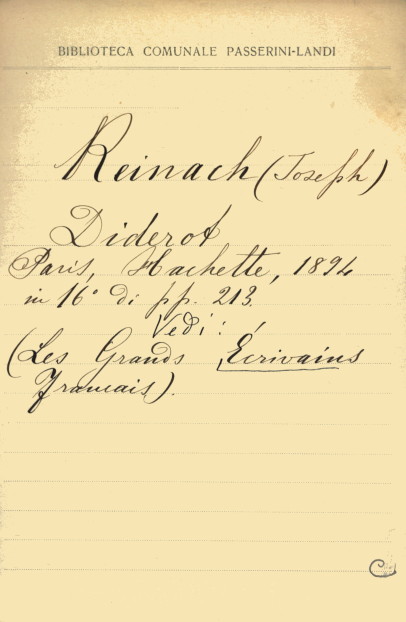 BIBLIOTECA COMUNALE PASSERINI-LANDI
Reinach (Joseph)
Diderot
Paris, Hachette, 1894
in 16° di pp. 213.
Vedi:
(Les Grands Écrivains
Francais).